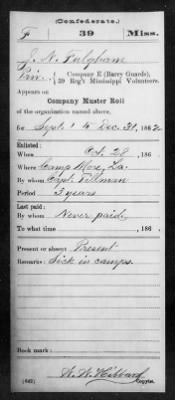 (Confederate.)
F 39 Miss.
J. N. Fulgham
Priv., Company E (Barry Guards),
39 Reg't Mississippi Volunteers.
Appears on
Company Muster Roll
of the organization named above,
for Sept. 1 to Dec. 31, 1862.
Enlisted:
When Oct. 28, 186
Where Camp Moore, La.
By whom Capt. Tillman
Period 3 years
Last paid:
By whom Never paid,
To what time , 186
Present or absent Present
Remarks: Sick in camps.
Book mark:
W. W. Hibbard
(642) Copyist.